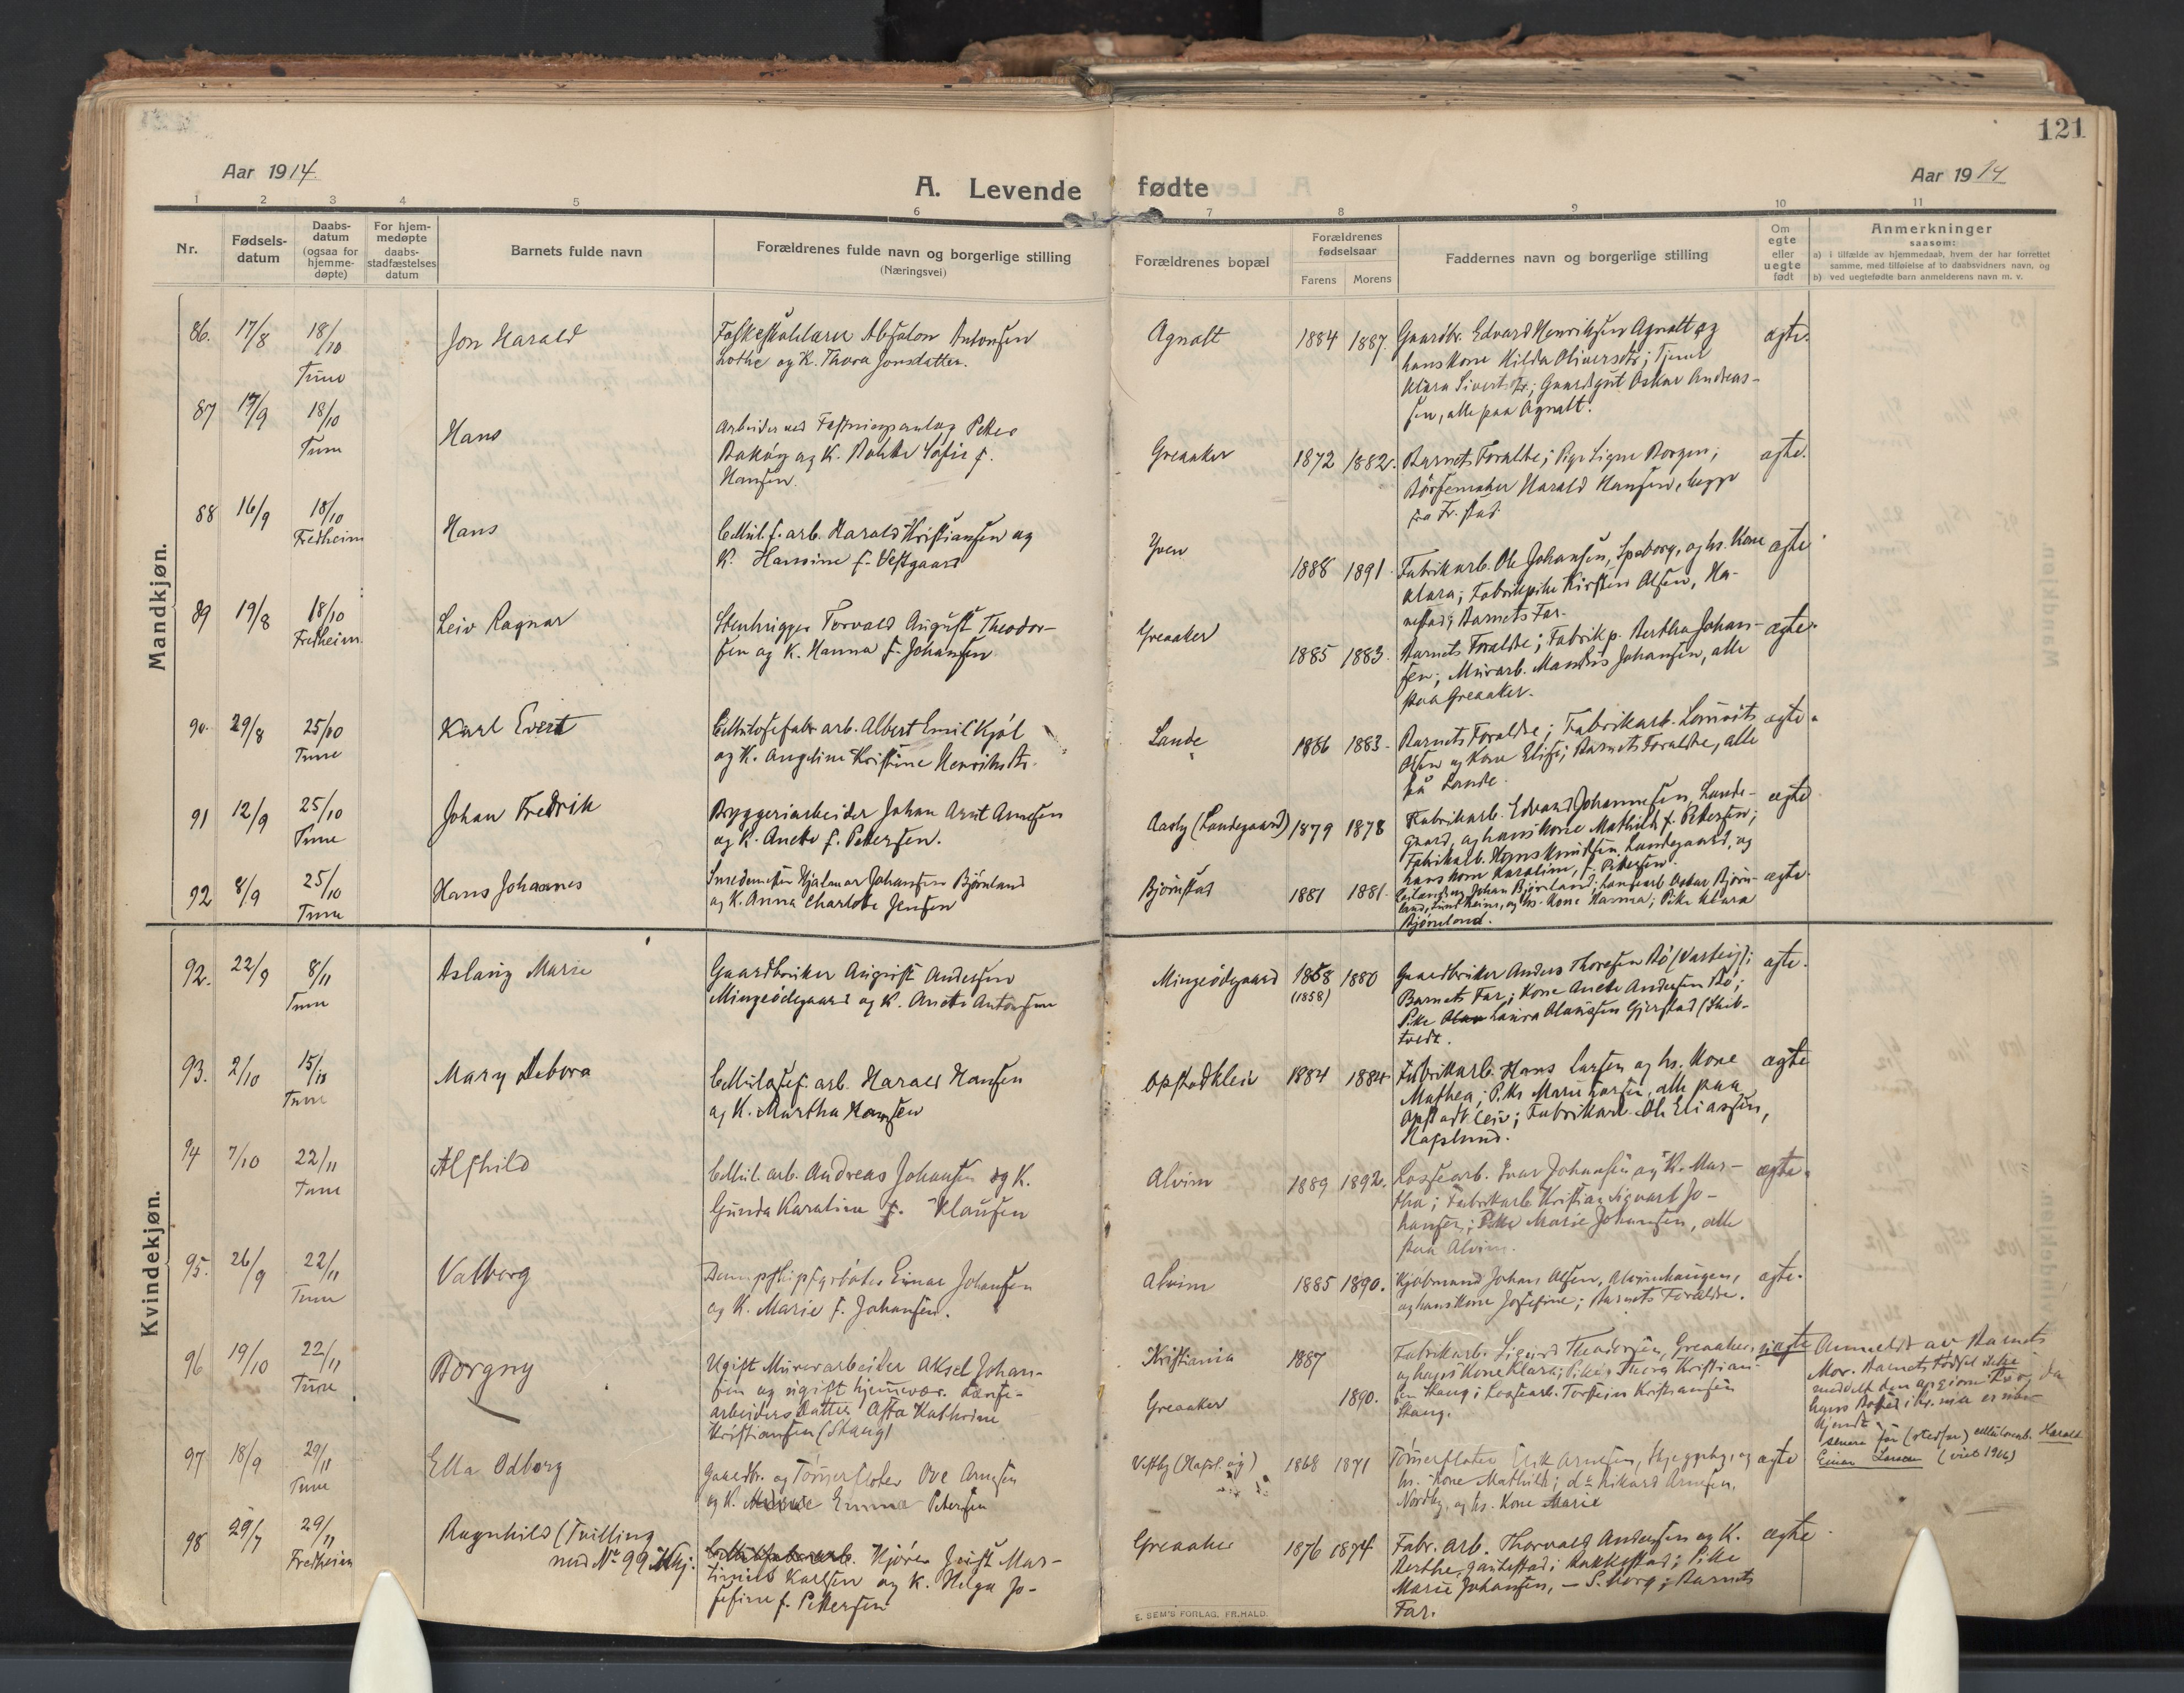 121
Aar 1914.
A. Levende fødte
Aar 1914
1 2 3 4 5 6 7 8 9 10 11
Nr.
Fødsels-datum
Daabs-datum (ogsaa for hjemme-døpte)
For hjem-medøpte daabs-stadfæstelses datum
Barnets fulde navn
Forældrenes fulde navn og borgerlige stilling
(Næringsvei)
Forældrenes bopæl
Forældrenes fødselsaar
Farens Morens
Faddernes navn og borgerlige stilling
Om egte eller uegte født
Anmerkninger
saasom:
a) i tilfælde av hjemmedaab, hvem der har forrettet
samme, med tilføielse af to daabsvidners navn, og
b) ved uegtefødte barn anmelderens navn m. v.
Mandkjøn.
86. 17/8 18/10 Tune
Jon Harald
Absalon Antonsen
Lothe og K. Thora Jonsdatter.
Agnalt 1884 1887.
Gaardbr. Edvard Henriksen Agnalt og
hans Kone Hilda Oliversdtr; Tjener
Klara Sivertsdtr.; Gaardsgut Oskar Andreas-
sen, alle paa Agnalt.
ægte.
87 17/9 18/10 Tune
Hans
Arbeider ved Fæstningsanlæg Petter
og K. Sofie f.
Hansen.
Greaaker 1872 1882.
Barnets Forældre; Pige Signe Borgen;
Børsemaker Harald Hansen, begge
fra Fr.stad.
ægte.
88 16/9 18/10 Fredheim
Hans
Cellul.f. arb. Harald Kristiansen og
K. Hansine f. Vestgaard
Yven 1888 1891.
Fabrikarb. Ole Johansen, Sp.borg, og hs. Kone
Klara; Fabrikpike Kirsten Olsen, Ha-
nestad; Barnets Far.
ægte
89 19/8 18/10 Fredheim
Leiv Ragnar
Stenhugger Torvald August Theodor-
sen og K. Hanna f. Johansen
Greaaker 1885 1883.
Barnets Forældre; Fabrikp. Bertha Johan-
sen; Murarb. Johansen, alle
paa Greaaker.
ægte.
90. 29/8 25/10 Tune
Karl Evert
Cellulosefabr arb. Albert Emil Kjøl
og K. Angeline Kristine Henriksdtr.
Lande 1886 1883.
Barnets Forældre; Fabrikarb. Lauritz
Olsen og Kone Elise; Barnets Forældre, alle
på Lande.
ægte
91 12/9 25/10 Tune
Johan Fredrik
Bryggeriarbeider Johan Arnt Arnesen
og K. Anette f. Pettersen.
Aasby (Landegaard) 1879 1878
Fabrikarb. Edvard Johannesen, Lande-
gaard, og hans Kone Mathilde f. Pettersen;
Fabrikarb. Hans Knudsen, Landegaard, og
hans Kone Karoline, f. Pettersen.
ægte
92 8/9 25/10 Tune
Hans Johannes
Smedmester Hjalmar Johansen Bjørnland
og K. Anna Charlotte Jensen
Bjørnstad 1881 1881.
Johan Bjørnland; Oskar Bjørn-
land, og hs. Kone Hanna; Pike Klara
Bjørnland.
ægte.
Kvindekjøn.
92. 22/9 8/11 Tune
Aslaug Marie
Gaardbruker August Andersen
Mingeødegaard og K. Anette Antonsen
Mingeødegaard 1868 (1858) 1880
Gaardbruker Anders Thoresen Bø (Varteig);
Barnets Far; Kone Anette Andersen Bø;
Pike Laura Olaussen Gjerstad (Skib-
tvedt.
ægte.
93. 2/10 15/11 Tune
Mary Debora
Cellulosef. arb. Harald Hansen
og K. Martha Hansen
Opstadkleiv 1884 1884.
Fabrikarb. Hans Larsen og hs. Kone
Mathea; Pike Marie Larsen, alle paa
Opstadkleiv; Fabrikarb. Ole Eliassen,
Hafslund.
ægte
94 7/10 22/11 Tune
Alfhild
Cellul. arb. Andreas Johansen og K.
Gunda Karoline f. Klausen
Alvim 1889 1892.
Lossearb. Ivar Johansen og K. Mar-
tha; Fabrikarb. Kristian Sigvart Jo-
hansen; Pike Marie Johansen, alle
paa Alvim.
ægte.
95. 26/9 22/11 Tune
Valborg
Dampskipsfyrbøter Einar Johansen
og K. Marie f. Johansen.
Alvim 1885 1890.
Kjøbmand Johan Olsen, Alvimhaugen,
og hans Kone Josefine; Barnets Forældre.
ægte.
96 19/10 22/11 Tune
Borgny
Ugift Murerarbeider Aksel Johan-
sen og ugift hjemmevær. Losse-
arbeiders datter Asta Kathrine
Kristiansen (Skaug)
Kristiania 1887
Greaaker 1890.
Fabrikarb. Sigurd Theodorsen, Greaaker,
og hans Kone Klara; Pike Thora Kristian-
sen Skaug; Lossearb. Torstein Kristiansen
Skaug.
uægte
Anmeldt av Barnets
Mor. Barnets Fødsel ikke
meddelt den opgivne Far, da
hans Bopæl i Kr.ania er ube-
kjendt.
senere far (stedfar) cellulosearb. Harald
Einar Larsen (viet 1916)
97 18/9 29/11 Tune
Ella Odborg
Gaardbr. og Tømmerfløter Ove Arnesen
og K. Emma Petersen
Vestby (Hafsl. og) 1868 1871
Tømmerfløter Erik Arnesen, Skjeggeby, og
hs. Kone Mathilde; do Rikard Arnesen,
Nordby, og hs. Kone Marie
ægte
98 29/7 29/11 Fredheim
Ragnhild (Tvilling
med No 99 Kkj.
Kjører Just Mar-
tinius Karlsen og K. Helga Jo-
sefine f. Pettersen
Greaaker 1876 1874
Fabr. arb. Thorvald Andersen og K.
Berthe, Rakkestad; Pike
Marie Johansen, – S.borg; Barnets
Far.
ægte
E. SEM'S FORLAG, FR.HALD.